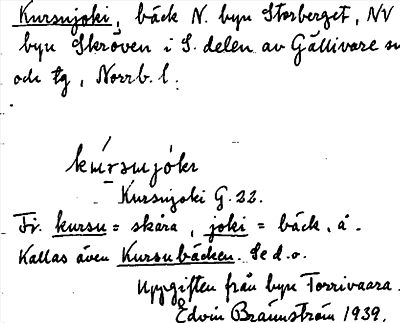 Kursujoki, bäck N. byn Storberget, NV
byn Skröven i S. delen av Gällivare sn
och tg, Norrb. l.
kúrsujókı
Kursujoki G. 22.
Fi. kursu = skåra, joki = bäck, å.
Kallas även Kursubäcken. Se d.o.
Uppgiften från byn Torrivaara.
Edvin Brännström 1939.